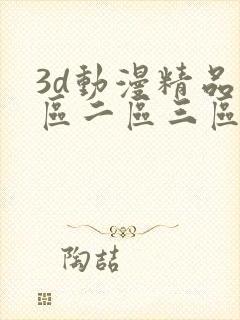 3d動漫精品
區二區三區
陶喆